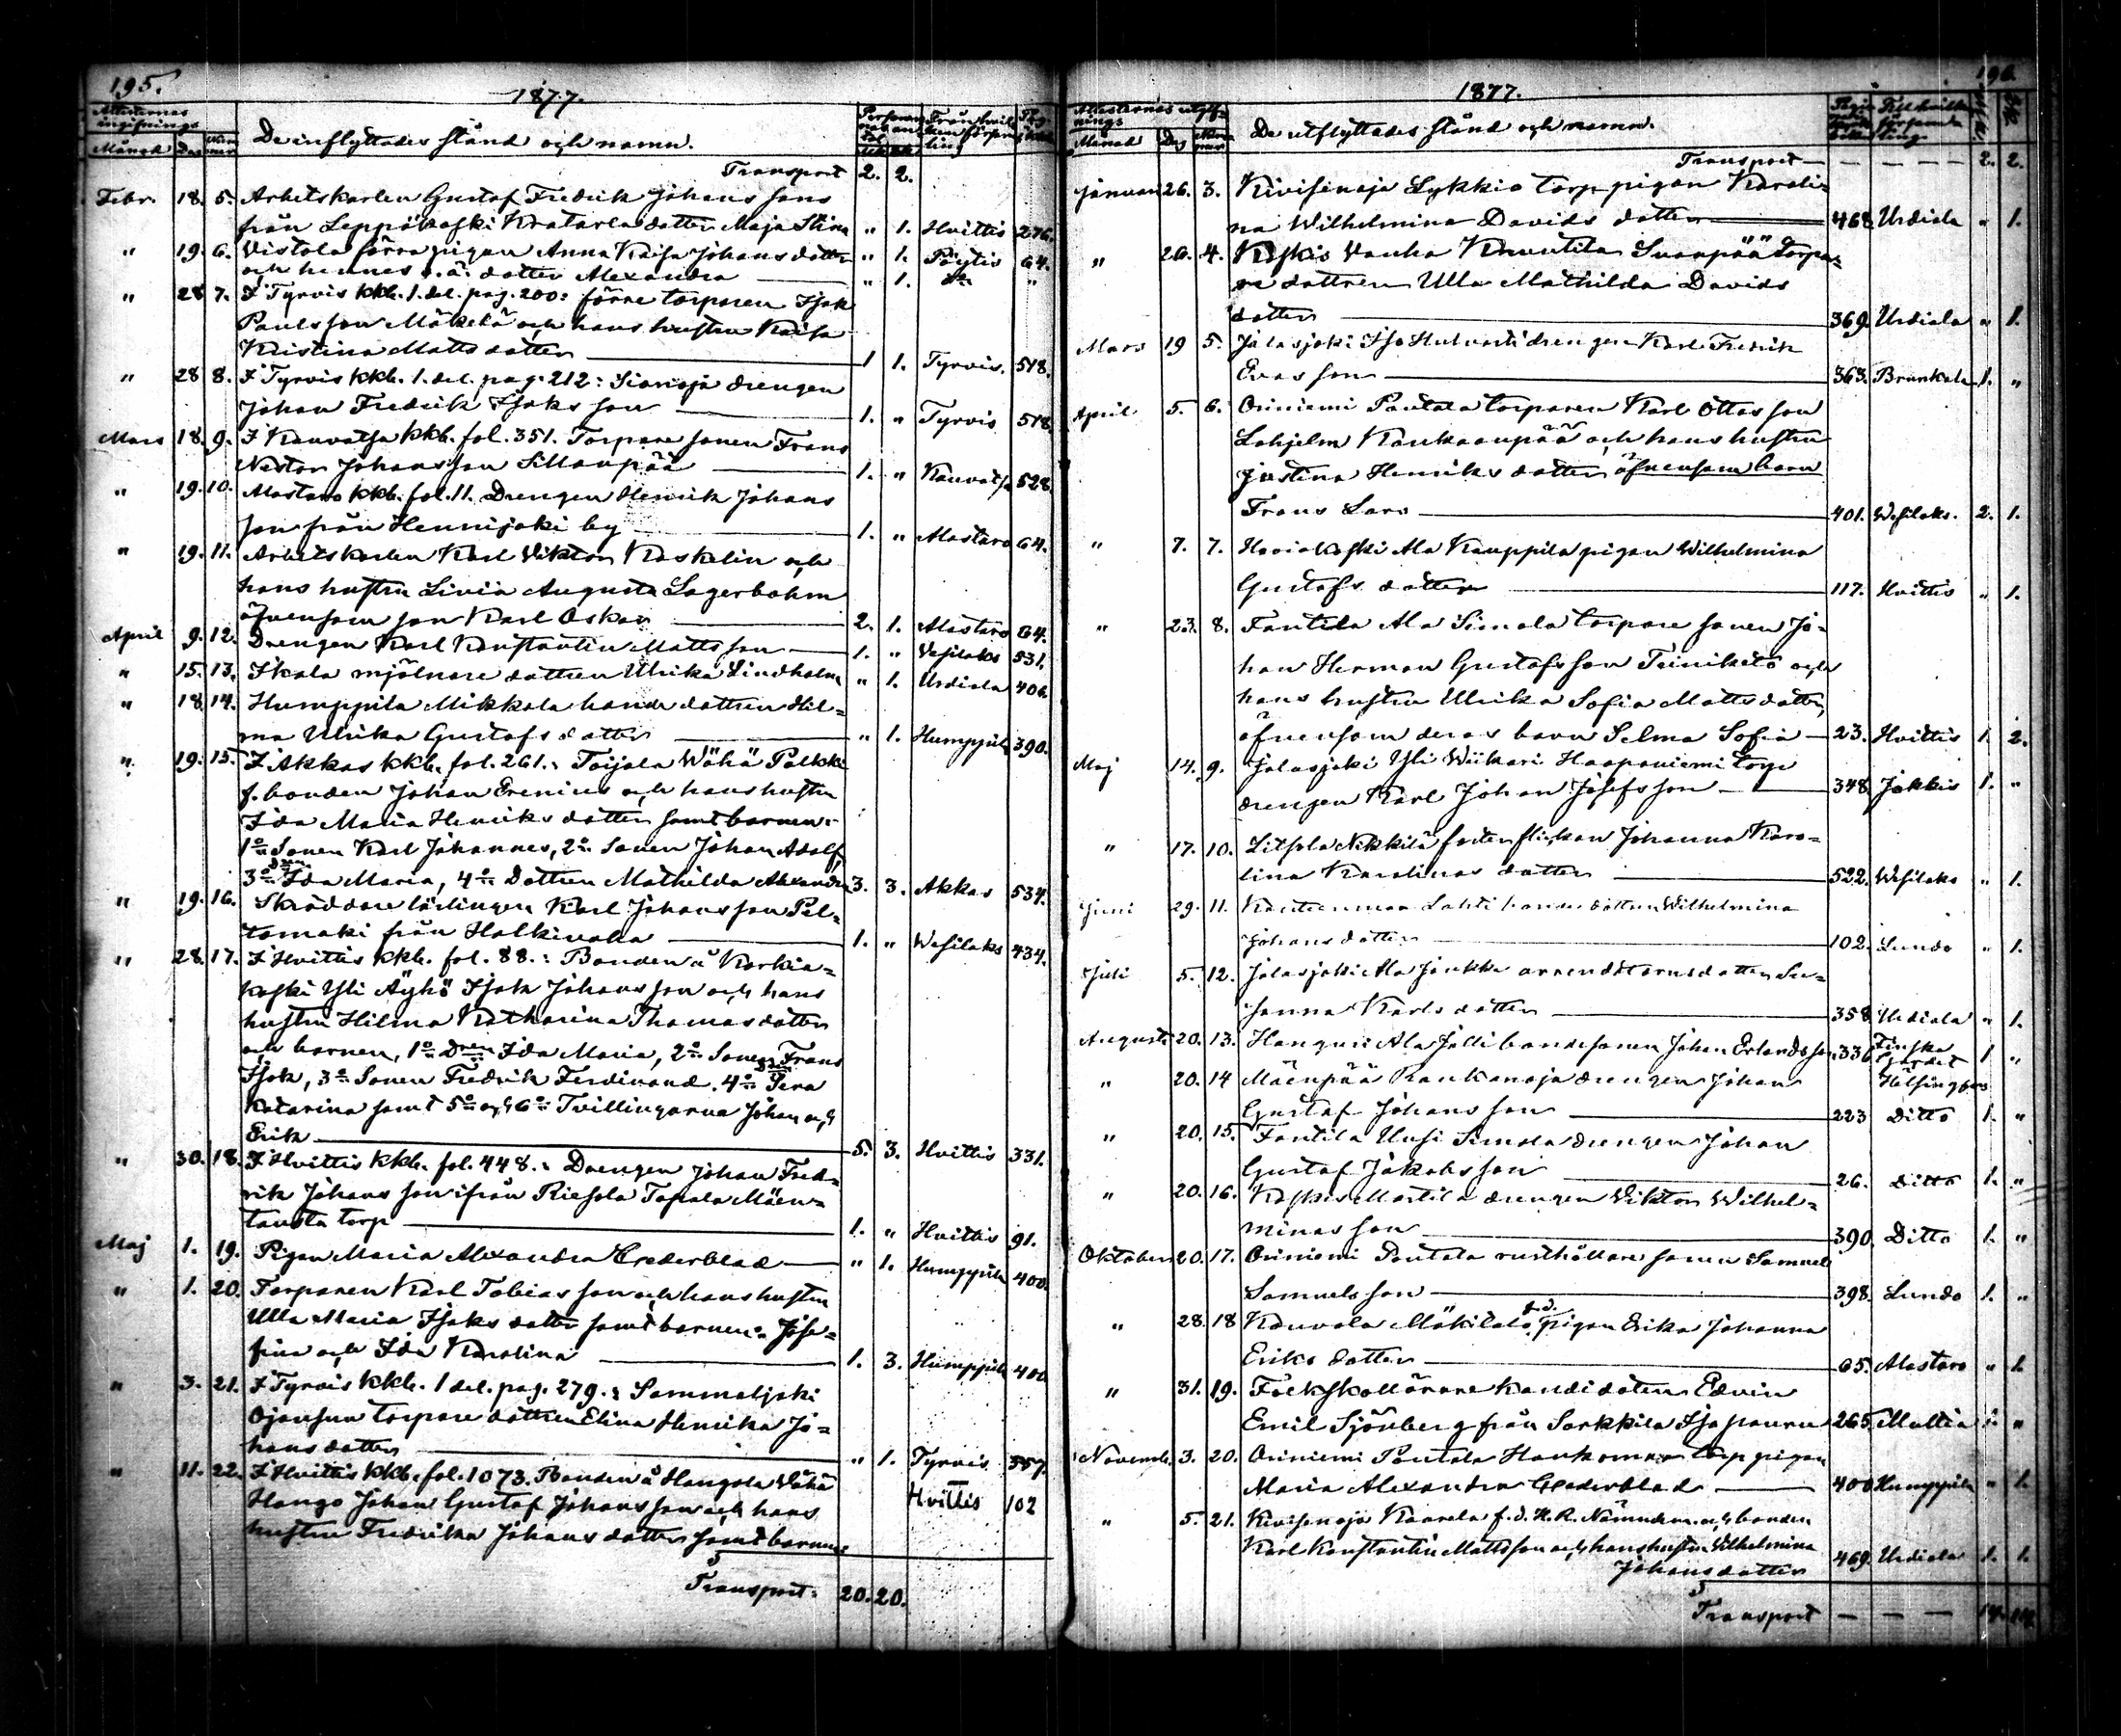 195.
1877.
Attesternas ingifnings
Månad Dag Nummer
De inflyttades stånd och namn.
Transport 2. 2.
Febr. 18. 5. Arbetskarlen Gustaf Fredrik Johans sons
från Leppäkoski dotter Maja Stina " 1. Hvittis 276.
" 19. 6. Vistola förra pigan Anna Kaisa Johans dotter " 1. Pöytis 64.
och hennes o. ä. dotter Alexandra " 1. do "
" 28 7. I Tyrvis kkb. 1. del. pag. 200: förre torparen Isak
Paulsson Mäkelä och hans hustru Kaisa
Kristina Matts dotter 1 1. Tyrvis. 518.
" 28 8. I Tyrvis kkb. 1. del. pag. 212: drengen
Johan Fredrik Isaks son 1. " Tyrvis 518.
Mars 18. 9. I Kauvatsa kkb. fol. 351. Torpare sonen Frans
Nestor Johansson Sillanpää 1. " Kauvatsa 528.
" 19. 10. Alastaro kkb. fol. 11. Drengen Henrik Johans
son från Hennijoki by 1. " Alastaro 64.
" 19. 11. Arbetskarlen Karl Viktor Koskelin och
hans hustru Livia Augusta Lagerbohm
äfvensom son Karl Oskar 2. 1. Alastaro 64.
April 9. 12. Drengen Karl Konstantin Matts son 1. " Vesilaks 531.
" 15. 13. Skala mjölnare dottren Ulrika Lindholm " 1. Urdiala 406.
" 18. 14. Humppila Mikkola bonde dottren Hil-
ma Ulrika Gustafs dotter " 1. Humppila 390.
" 19. 15. I Akkas kkb. fol. 261.: Toijala Wähä Pälkki
f. bonden Johan Erenius och hans hustru
Ida Maria Henriks dotter samt barnen:
1o Sonen Karl Johannes, 2o Sonen Johan Adolf,
3o dren Ida Maria, 4o Dottren Mathilda Alexandra 3. 3. Akkas 534.
" 19. 16. Skräddare lärlingen Karl Johansson Pel-
tomaki från Halkivaha 1. " Wesilaks 434.
" 28. 17. I Hvittis kkb. fol. 88.: Bonden å Korkia-
koski Yli Äyhö Isak Johans son och hans
hustru Hilma Katharina Thomas dotter
och barnen, 1o Dren Ida Maria, 2o Sonen Frans
Isak, 3o Sonen Fredrik Ferdinand, 4o dren
Katarina samt 5o och 6o Tvillingarna Johan och
Erik 5. 3. Hvittis 331.
" 30. 18. I Hvittis kkb. fol. 448.: Drengen Johan Fred-
rik Johans son ifrån Riesola Topala Mäen-
tausta torp 1. " Hvittis 91.
Maj 1. 19. Pigan Maria Alexandra Crederblad " 1. Humppila 400.
" 1. 20. Torparen Karl Tobias son och hans hustru
Ulla Maria Isaks dotter samt barnen: Jose-
fina och Ida Karolina 1. 3. Humppila 400
" 3. 21. I Tyrvis kkb. 1 del. pag. 279.: Sammaljoki
Ojansuu torpare dottren Elina Henrika Jo-
hans dotter " 1. Tyrvis 357.
" 11. 22. I Hvittis kkb. fol. 1073. Bonden å Hangola Wähä Hvittis 102
Hango Johan Gustaf Johans son och hans
hustru Fredrika Johans dotter samt barnen:
Transport: 20. 20.
196.
1877.
Attesternas utgifnings
Månad Dag Nummer
De utflyttades stånd och namn.
Transport — — — — 2. 2.
Januari 26. 3. Kivisenoja Lykkiö torp pigan Karoli-
na Wilhelmina Davids dotter 468 Urdiala " 1.
" 26. 4. Koskis Wanha Knuutila Suonpää torpa-
re dottren Ulla Mathilda Davids
dotter 369. Urdiala " 1.
Mars 19 5. Jalasjoki Iso drengen Karl Fredrik
Evas son 363. Brunkala 1. "
April 5. 6. Oriniemi Pautala torparen Karl Ottos son
Lohjelm Kaukaanpää och hans hustru
Justina Henriks dotter äfvensom barn
Frans Lars 401. Wesilaks. 2. 1.
" 7. 7. Haviokoski Ala Kauppila pigan Wilhelmina
Gustafs dotter 117. Hvittis " 1.
" 23. 8. Fantila Ala Simola torpare sonen Jo-
han Herman Gustafs son Teiniketo och
hans hustru Ulrika Sofia Matts dotter,
äfvensom deras barn Selma Sofia 23. Hvittis 1. 2.
Maj 14. 9. Jalasjoki Yli Wiikari Haapaniemi torp
drengen Karl Johan Josefs son 348 Jokkis 1. "
" 17. 10. Litsola Nikkilä foster flickan Johanna Karo-
lina Karolinas dotter 522. Wesilaks " 1.
Juni 29. 11. Lahti bonde dottren Wilhelmina
Johans dotter 102. Lundo " 1.
Juli 5. 12. Jalasjoki Ala Jaukka arrendators dotter Su-
sanna Karls dotter 358 Urdiala " 1.
Augusti 20. 13. Hanguis Ala Jälli bondesonen Johan Erlands son 336 Finska Gardet Helsingfors 1. "
" 20. 14 Mäenpää Raukanoja drengen Johan
Gustaf Johans son 223 Ditto 1. "
" 20. 15. Fantila Uusi Simola drengen Johan
Gustaf Jakobs son 26. Ditto 1. "
" 20. 16. Koskis Martila drengen Viktor Wilhel-
minas son 390. Ditto 1. "
Oktober 20. 17. Oriniemi Pautala rusthållare sonen Samuel
Samuels son 398. Lundo 1. "
" 28. 18 Kouvola Mäkitalo f.d. pigan Erika Johanna
Eriks dotter 65. Alastaro " 1.
" 31. 19. Folkskollärare kandidaten Edvin
Emil Sjöberg från Sarkkila Iso 265. Multia 1. "
November 3. 20. Oriniemi Pautala torp pigan
Maria Alexandra Crederblad 400 Humppila " 1.
" 5. 21. Kivisenoja Kaarela f. d. H. R. Nämndem. och bonden
Karl Konstantin Mattsson och hans hustru Wilhelmina
Johans dotter 469. Urdiala 1. 1.
Transport — — — 14. 14.